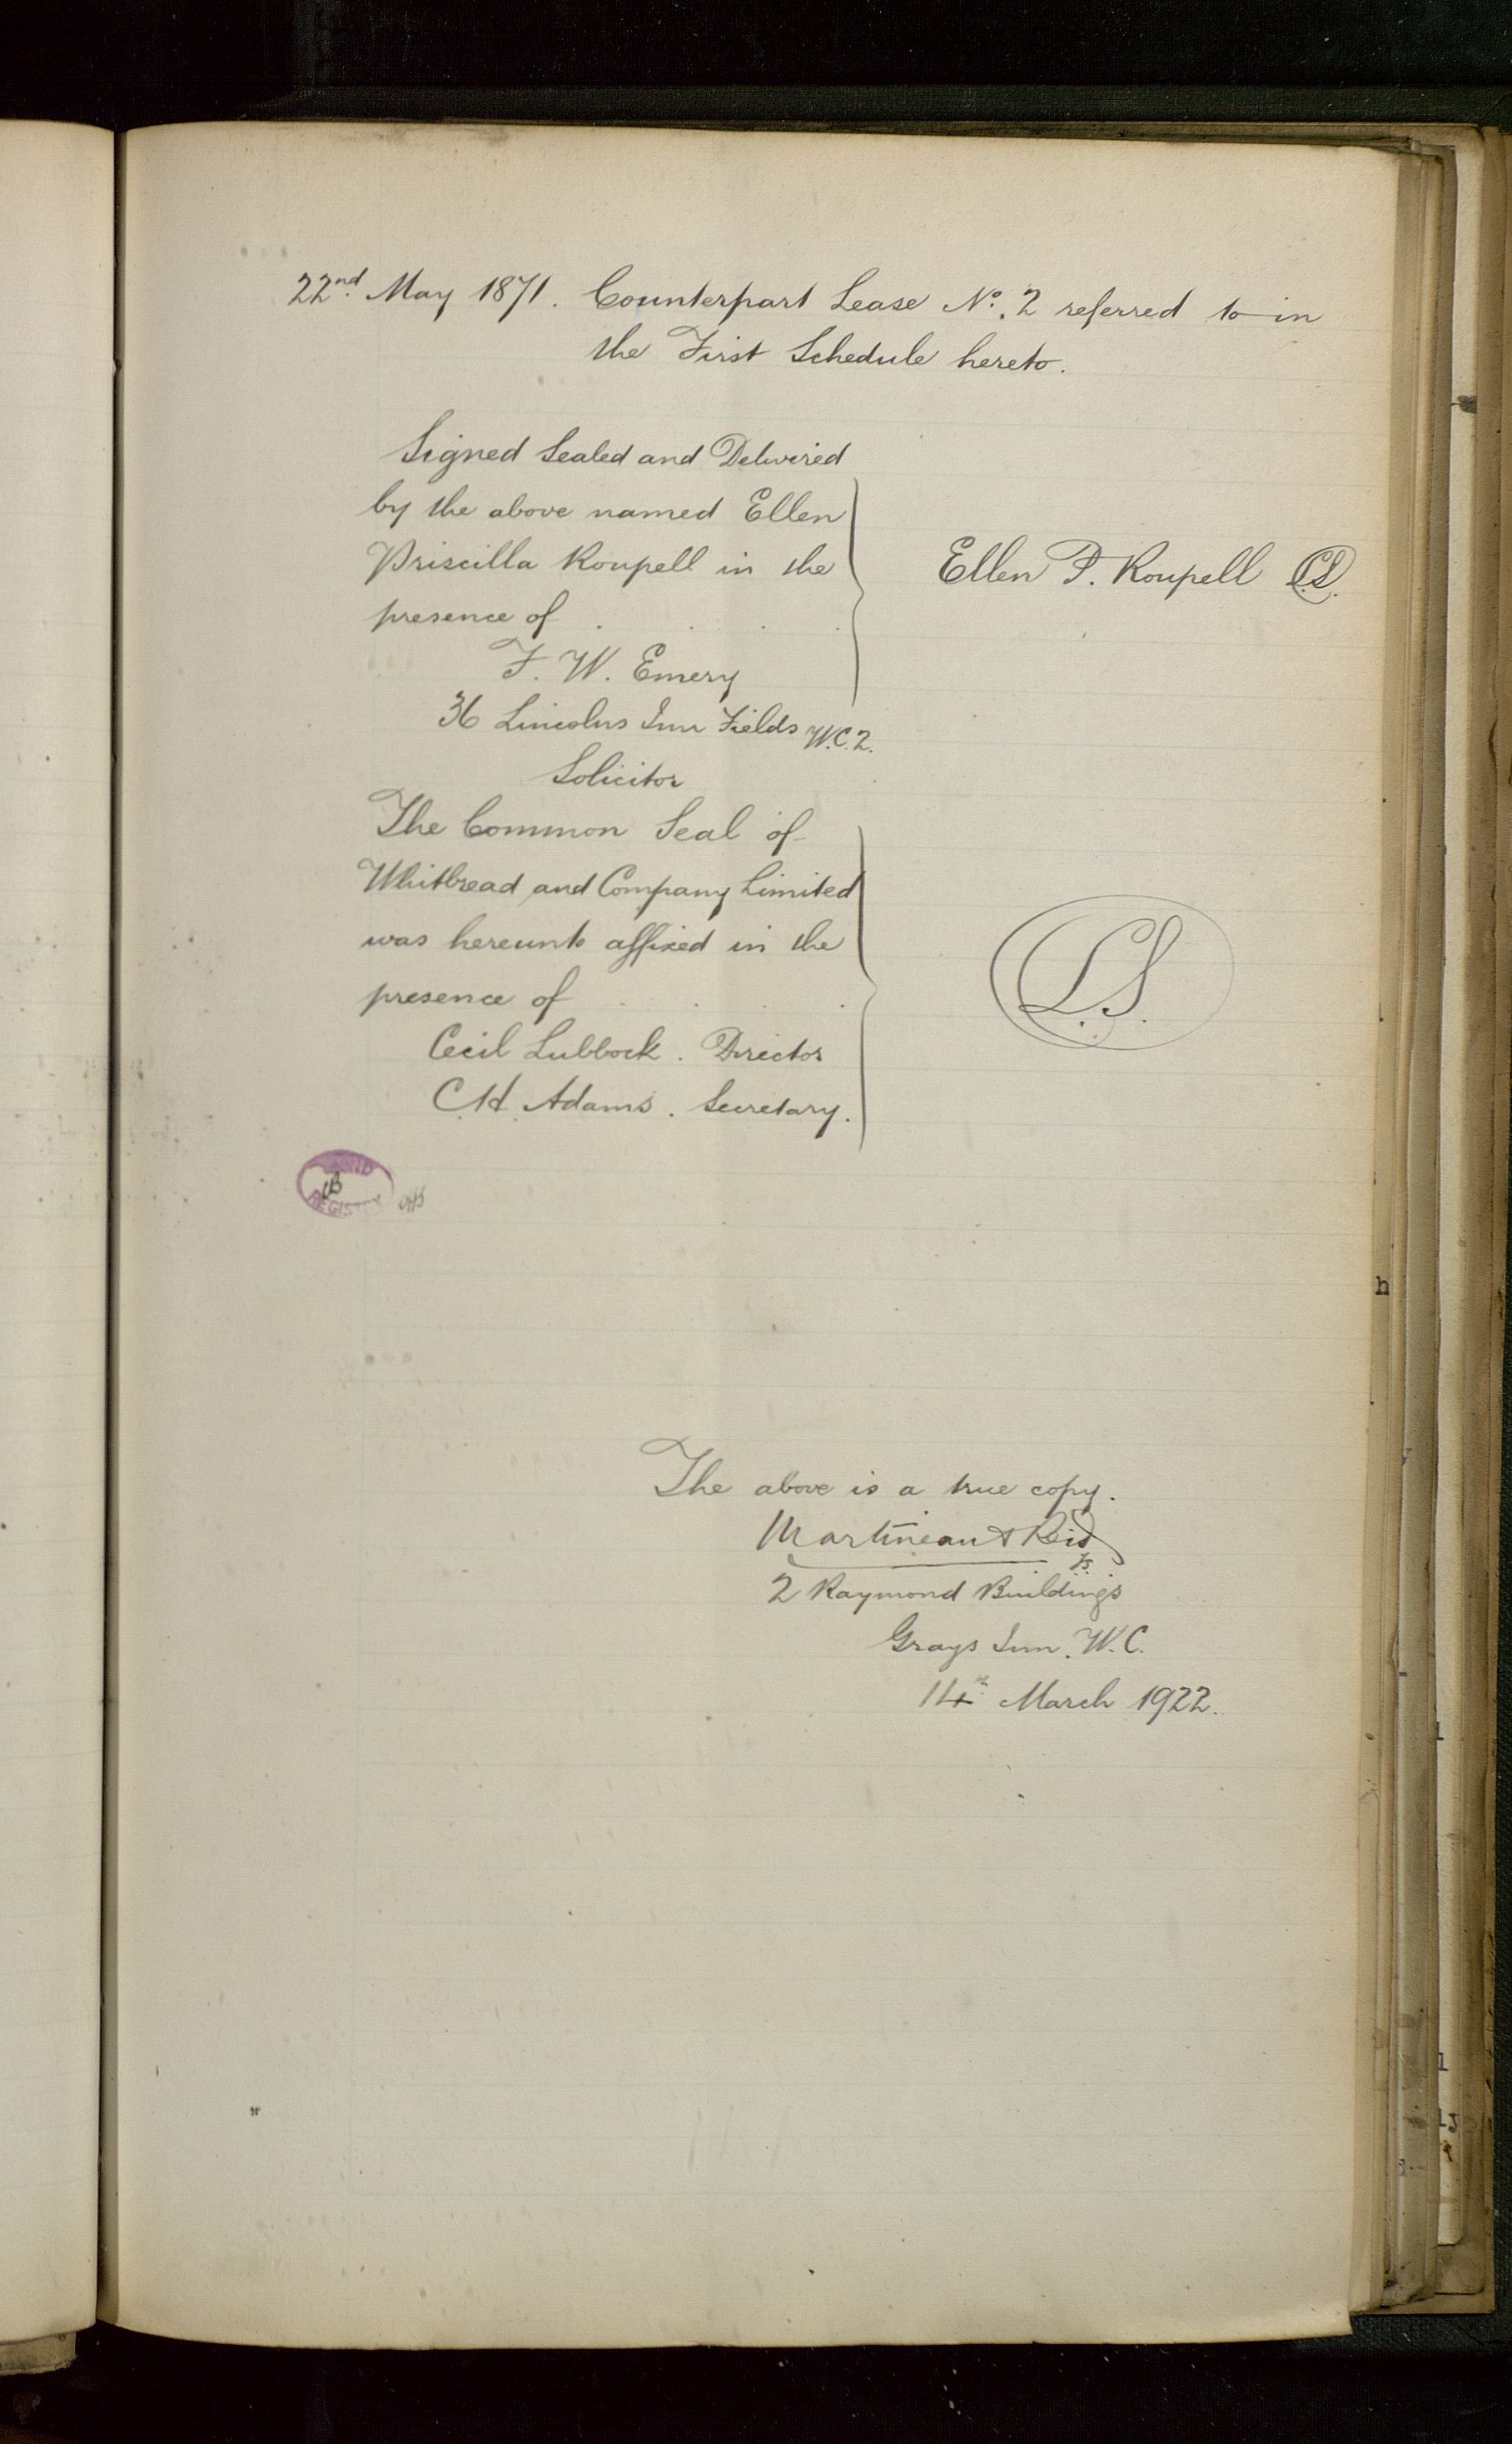 22nd. May 1871. Counterpart Lease No. 2 referred to in
the First Schedule hereto.
Signed Sealed and Delivered
by the above named Ellen
Priscilla Roupell in the
presence of
Ellen P. Roupell L.S.
F. W. Emery
36 Lincolns Inn Fields W.C.2.
Solicitor
The Common Seal of
Whitbread and Company Limited
was hereunto affixed in the
presence of
L.S.
Cecil Lubbock. Director
C.H. Adams. Secretary.
LAND
REGISTRY
The above is a true copy.
Martineau & Reid
2 Raymond Buildings
Grays Inn. W.C.
14th March 1922.